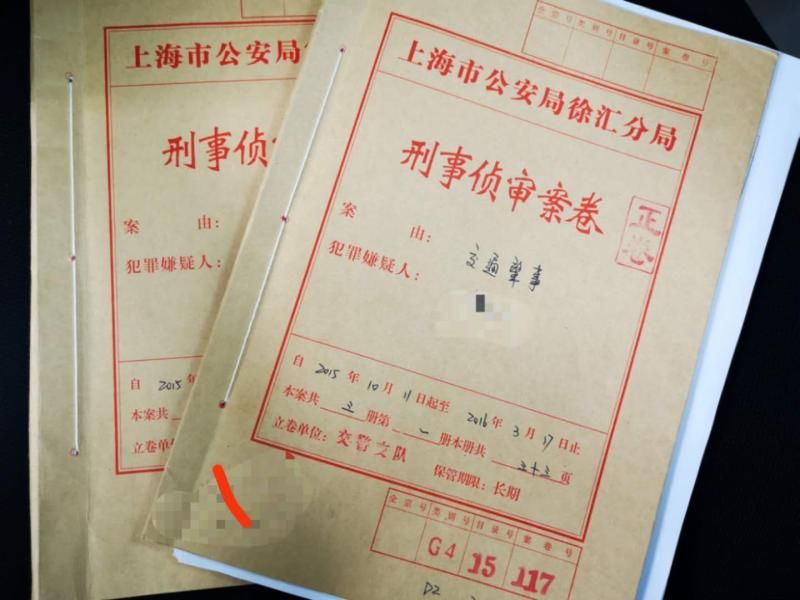 上海市公安局
刑事侦
案 由：
犯罪嫌疑人：
自 2015 年
本案共
立卷单位
全宗号 类别号 目录号 案卷号
上海市公安局徐汇分局
刑事侦审案卷
正卷
案 由： 交通肇事
犯罪嫌疑人：
自 2015 年 10 月 11 日起至 2016 年 3 月 17 日止
本案共 三 册第 一 册本册共 三十三 页
立卷单位：交警支队 保管期限：长期
全宗号 类别号 目录号 案卷号
G4 15 117
DZ